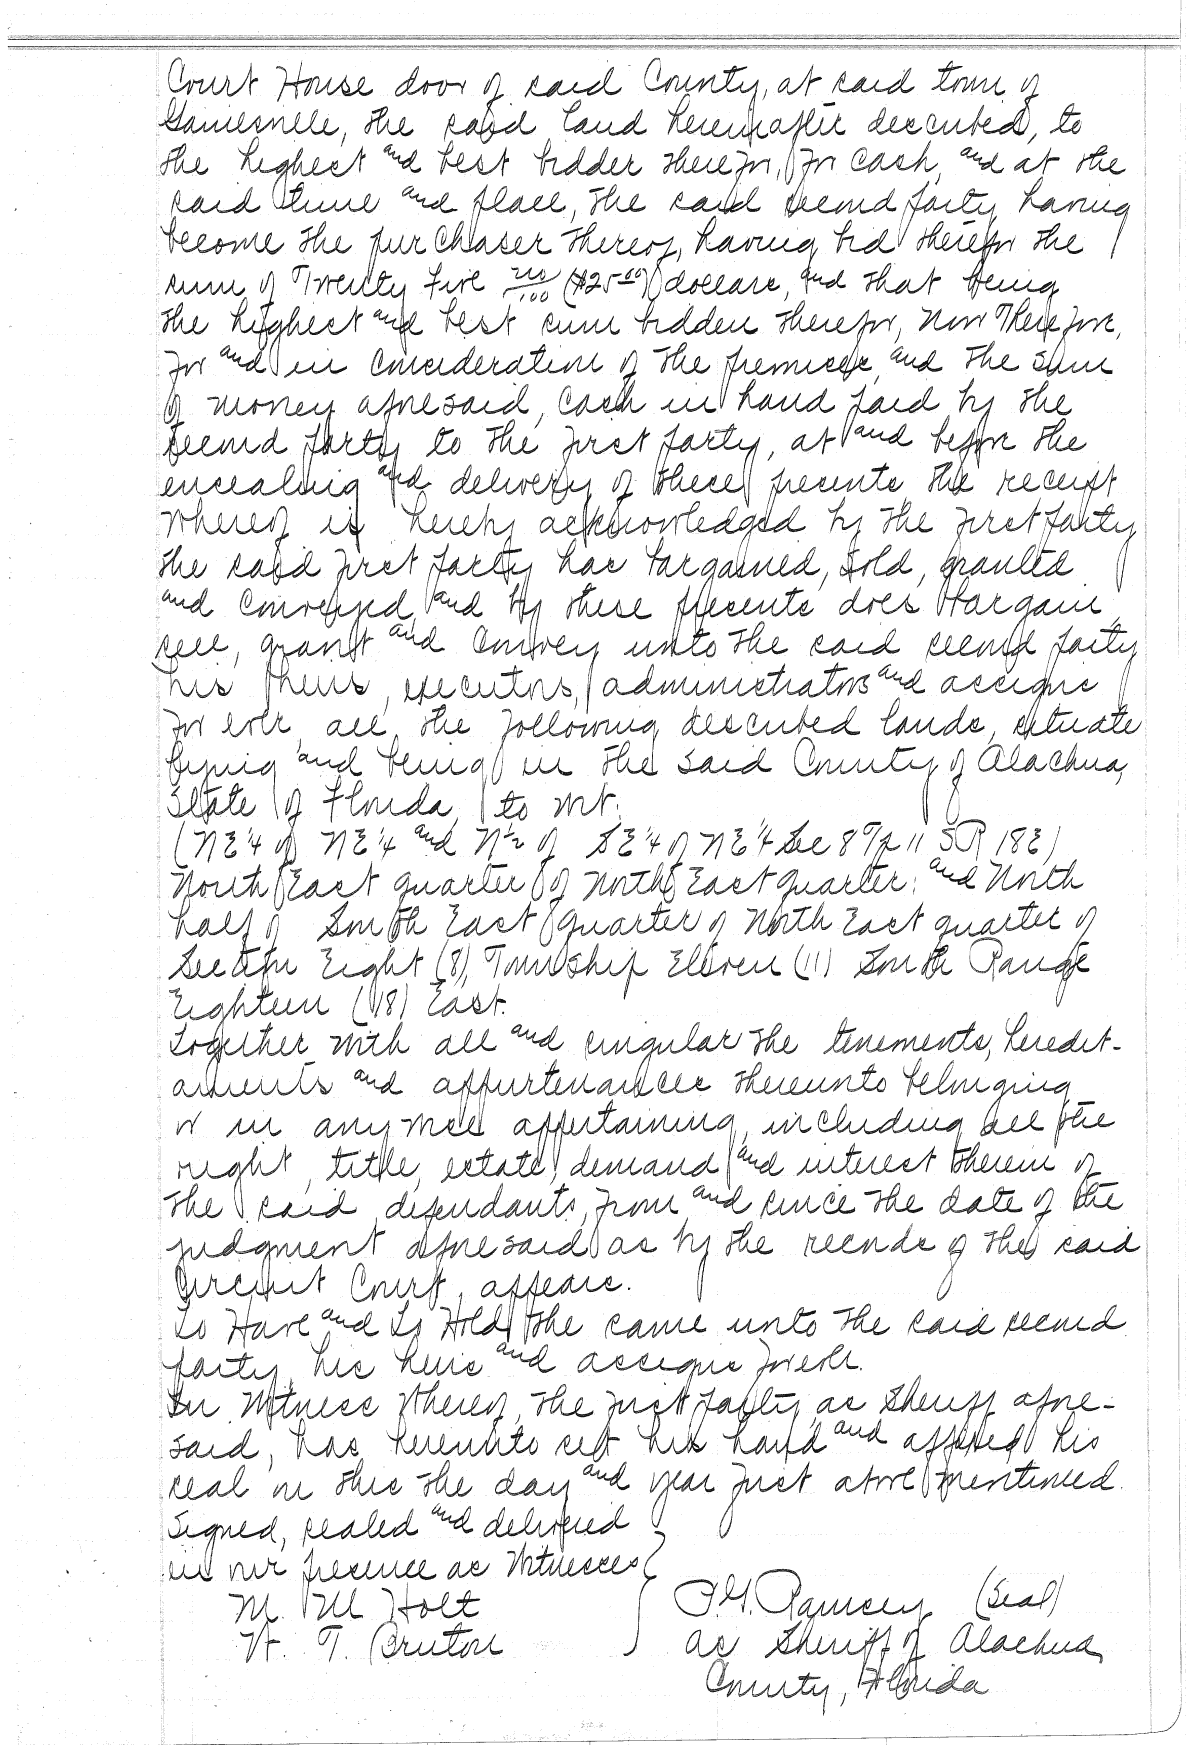 Court House door of said County, at said town of
Gainesville, the said land hereinafter described, to
the highest and best bidder therefor, for cash, and at the
said time and place, the said second party having
become the purchaser thereof, having bid therefor the
sum of Twenty Five no/100 ($25.00) dollars, and that being
the highest and best sum bidden therefor, Now Therefore,
for and in consideration of the premises, and the sum
of money aforesaid, cash in hand paid by the
second party to the first party, at and before the
ensealing and delivery of these presents, the receipt
whereof is hereby acknowledged by the first party
the said first party has bargained, sold, granted
and conveyed, and by these presents does bargain,
sell, grant and convey unto the said second party
his heirs, executors, administrators and assigns
for ever, all, the following described lands, situate
lying and being in the said County of Alachua,
State of Florida, to wit:
(NE¼ of NE¼ and N½ of SE¼ of NE¼ Sec 8 Tp 11 S R 18E)
North East quarter of North East quarter; and North
half of South East quarter of North East quarter of
Section Eight (8), Township Eleven (11) South Range
Eighteen (18) East.
Together with all and singular the tenements, heredit-
aments and appurtenances thereunto belonging
or in any wise appertaining, including all the
right, title, estate, demand and interest therein of
the said defendants, from and since the date of the
judgment aforesaid as by the records of the said
Circuit Court, appears.
To Have and To Hold, the same unto the said second
party, his heirs and assigns forever.
In Witness Whereof, the first party, as Sheriff afore-
said, has hereunto set his hand and affixed his
seal on this the day and year first above mentioned.
Signed, sealed and delivered
in our presence as Witnesses
M. M. Holt
W. T. Bruton
P.G. Ramsey (Seal)
as Sheriff of Alachua
County, Florida